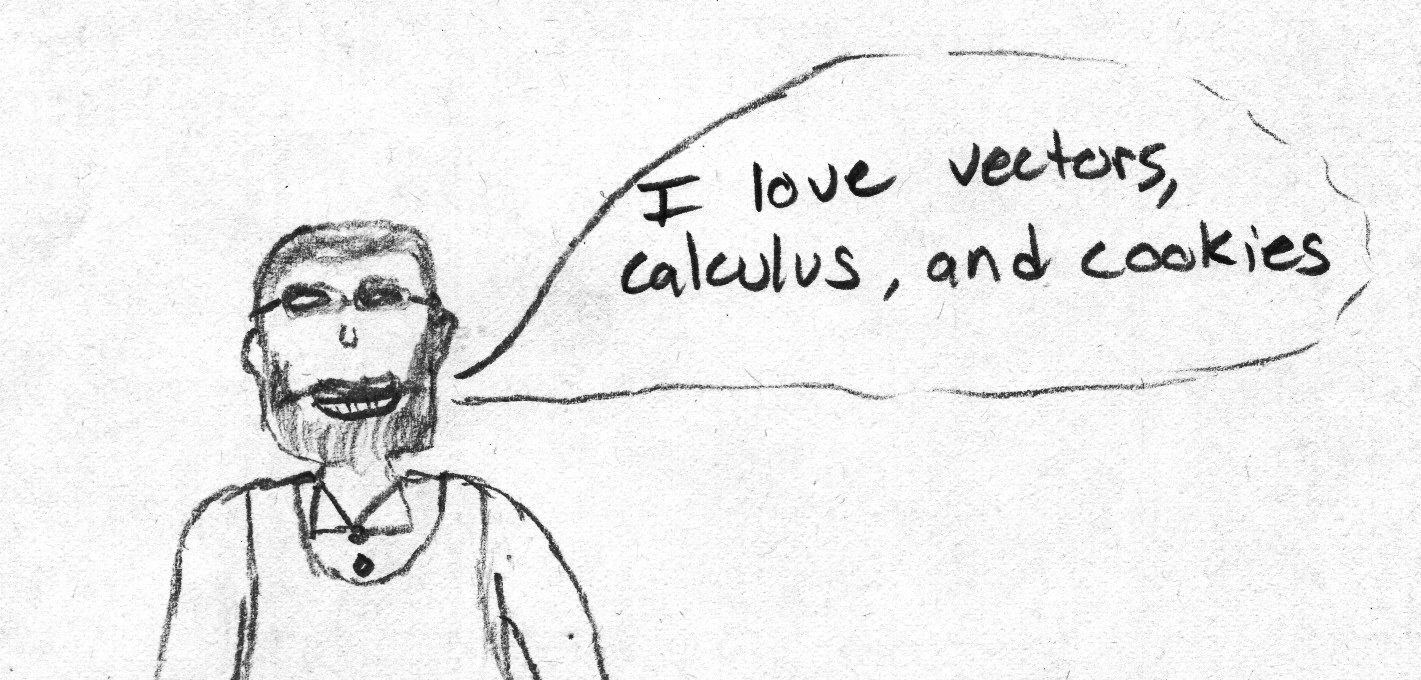 I love vectors,
calculus, and cookies